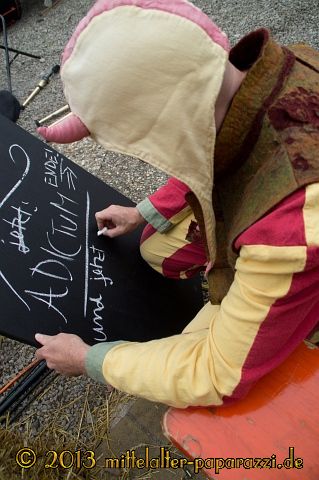 jetzt:
ADICTUM
ENDE!
und jetzt
© 2013 mittelalter-paparazzi.de